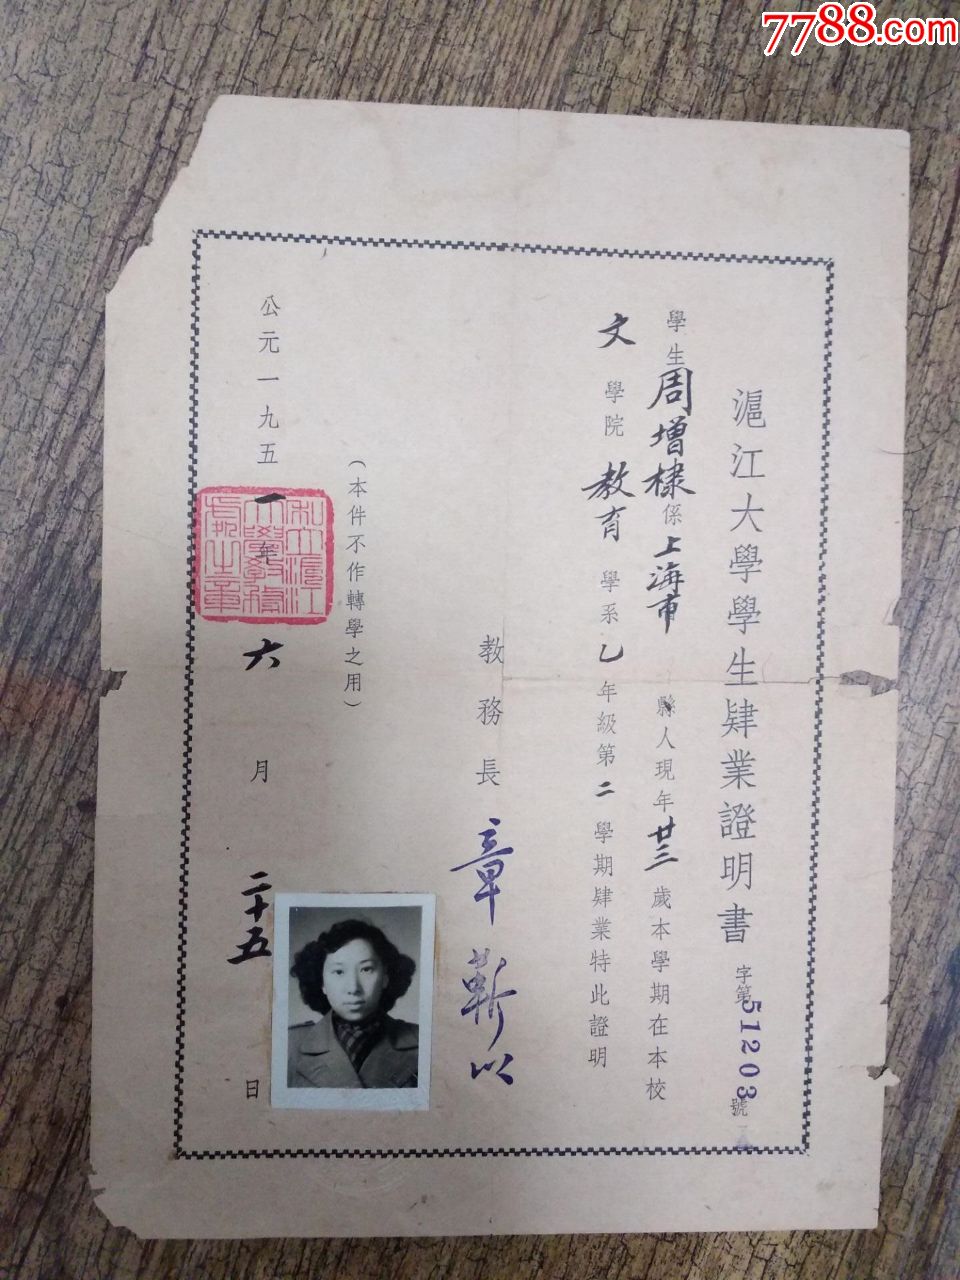 7788.com
滬江大學學生肄業證明書 字第51203號
學生周增棣係上海市縣人現年廿三歲本學期在本校
文學院教育學系乙年級第二學期肄業特此證明
教務長章靳以
(本件不作轉學之用)
公元一九五一年六月二十五日
私立滬江
大學教務
處之章